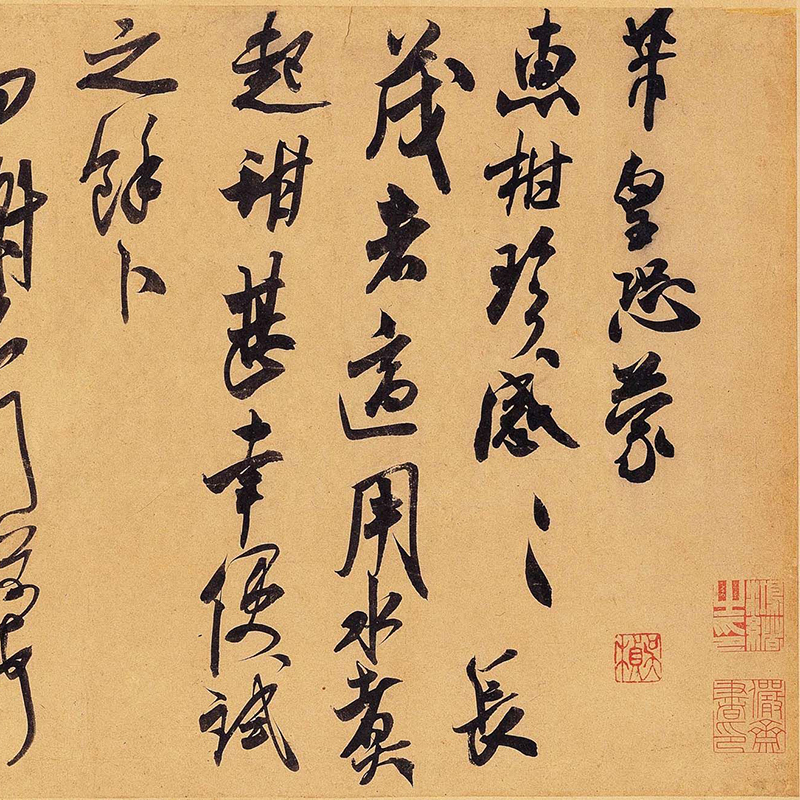 芾皇恐蒙
惠柑珍感〻長
茂者適用水煮
起甜甚幸便試
之餘卜